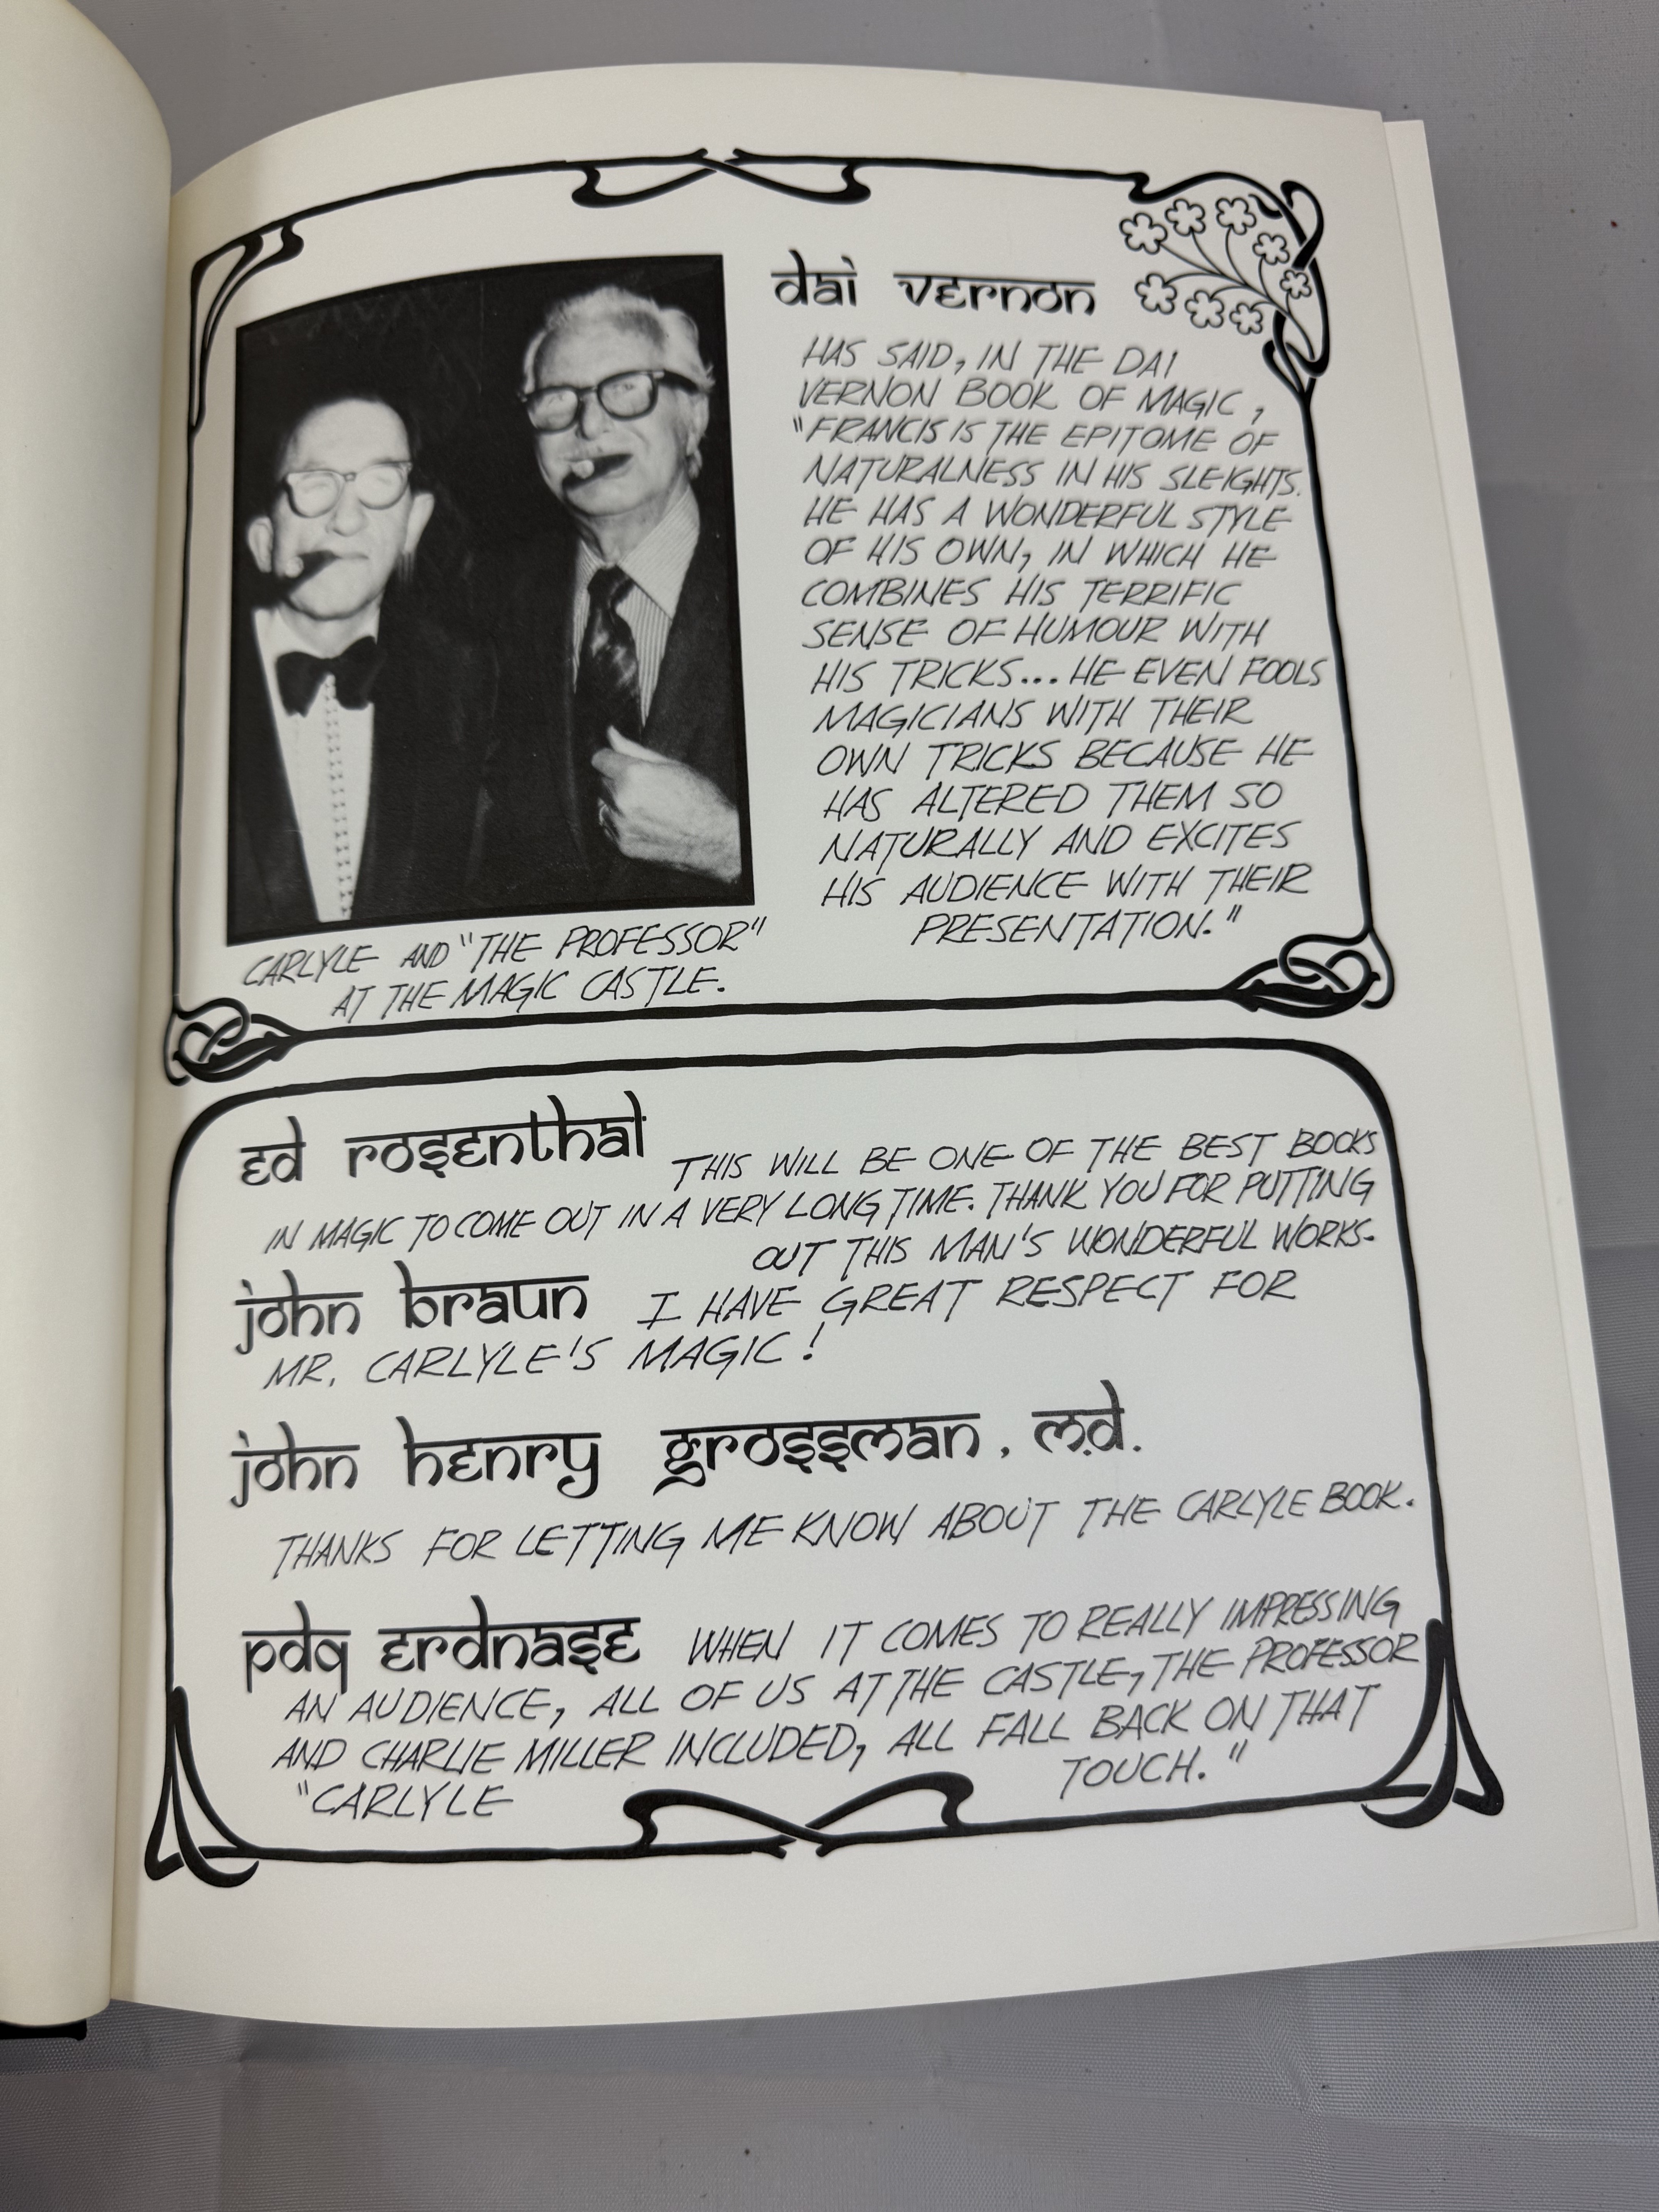 dai vernon
HAS SAID, IN THE DAI
VERNON BOOK OF MAGIC,
"FRANCIS IS THE EPITOME OF
NATURALNESS IN HIS SLEIGHTS.
HE HAS A WONDERFUL STYLE
OF HIS OWN, IN WHICH HE
COMBINES HIS TERRIFIC
SENSE OF HUMOUR WITH
HIS TRICKS... HE EVEN FOOLS
MAGICIANS WITH THEIR
OWN TRICKS BECAUSE HE
HAS ALTERED THEM SO
NATURALLY AND EXCITES
HIS AUDIENCE WITH THEIR
PRESENTATION."
CARLYLE AND "THE PROFESSOR"
AT THE MAGIC CASTLE.
ed rosenthal THIS WILL BE ONE OF THE BEST BOOKS
IN MAGIC TO COME OUT IN A VERY LONG TIME. THANK YOU FOR PUTTING
OUT THIS MAN'S WONDERFUL WORKS.
john braun I HAVE GREAT RESPECT FOR
MR. CARLYLE'S MAGIC!
john henry grossman, m.d.
THANKS FOR LETTING ME KNOW ABOUT THE CARLYLE BOOK.
pdq erdnase WHEN IT COMES TO REALLY IMPRESSING
AN AUDIENCE, ALL OF US AT THE CASTLE, THE PROFESSOR
AND CHARLIE MILLER INCLUDED, ALL FALL BACK ON THAT
"CARLYLE TOUCH."